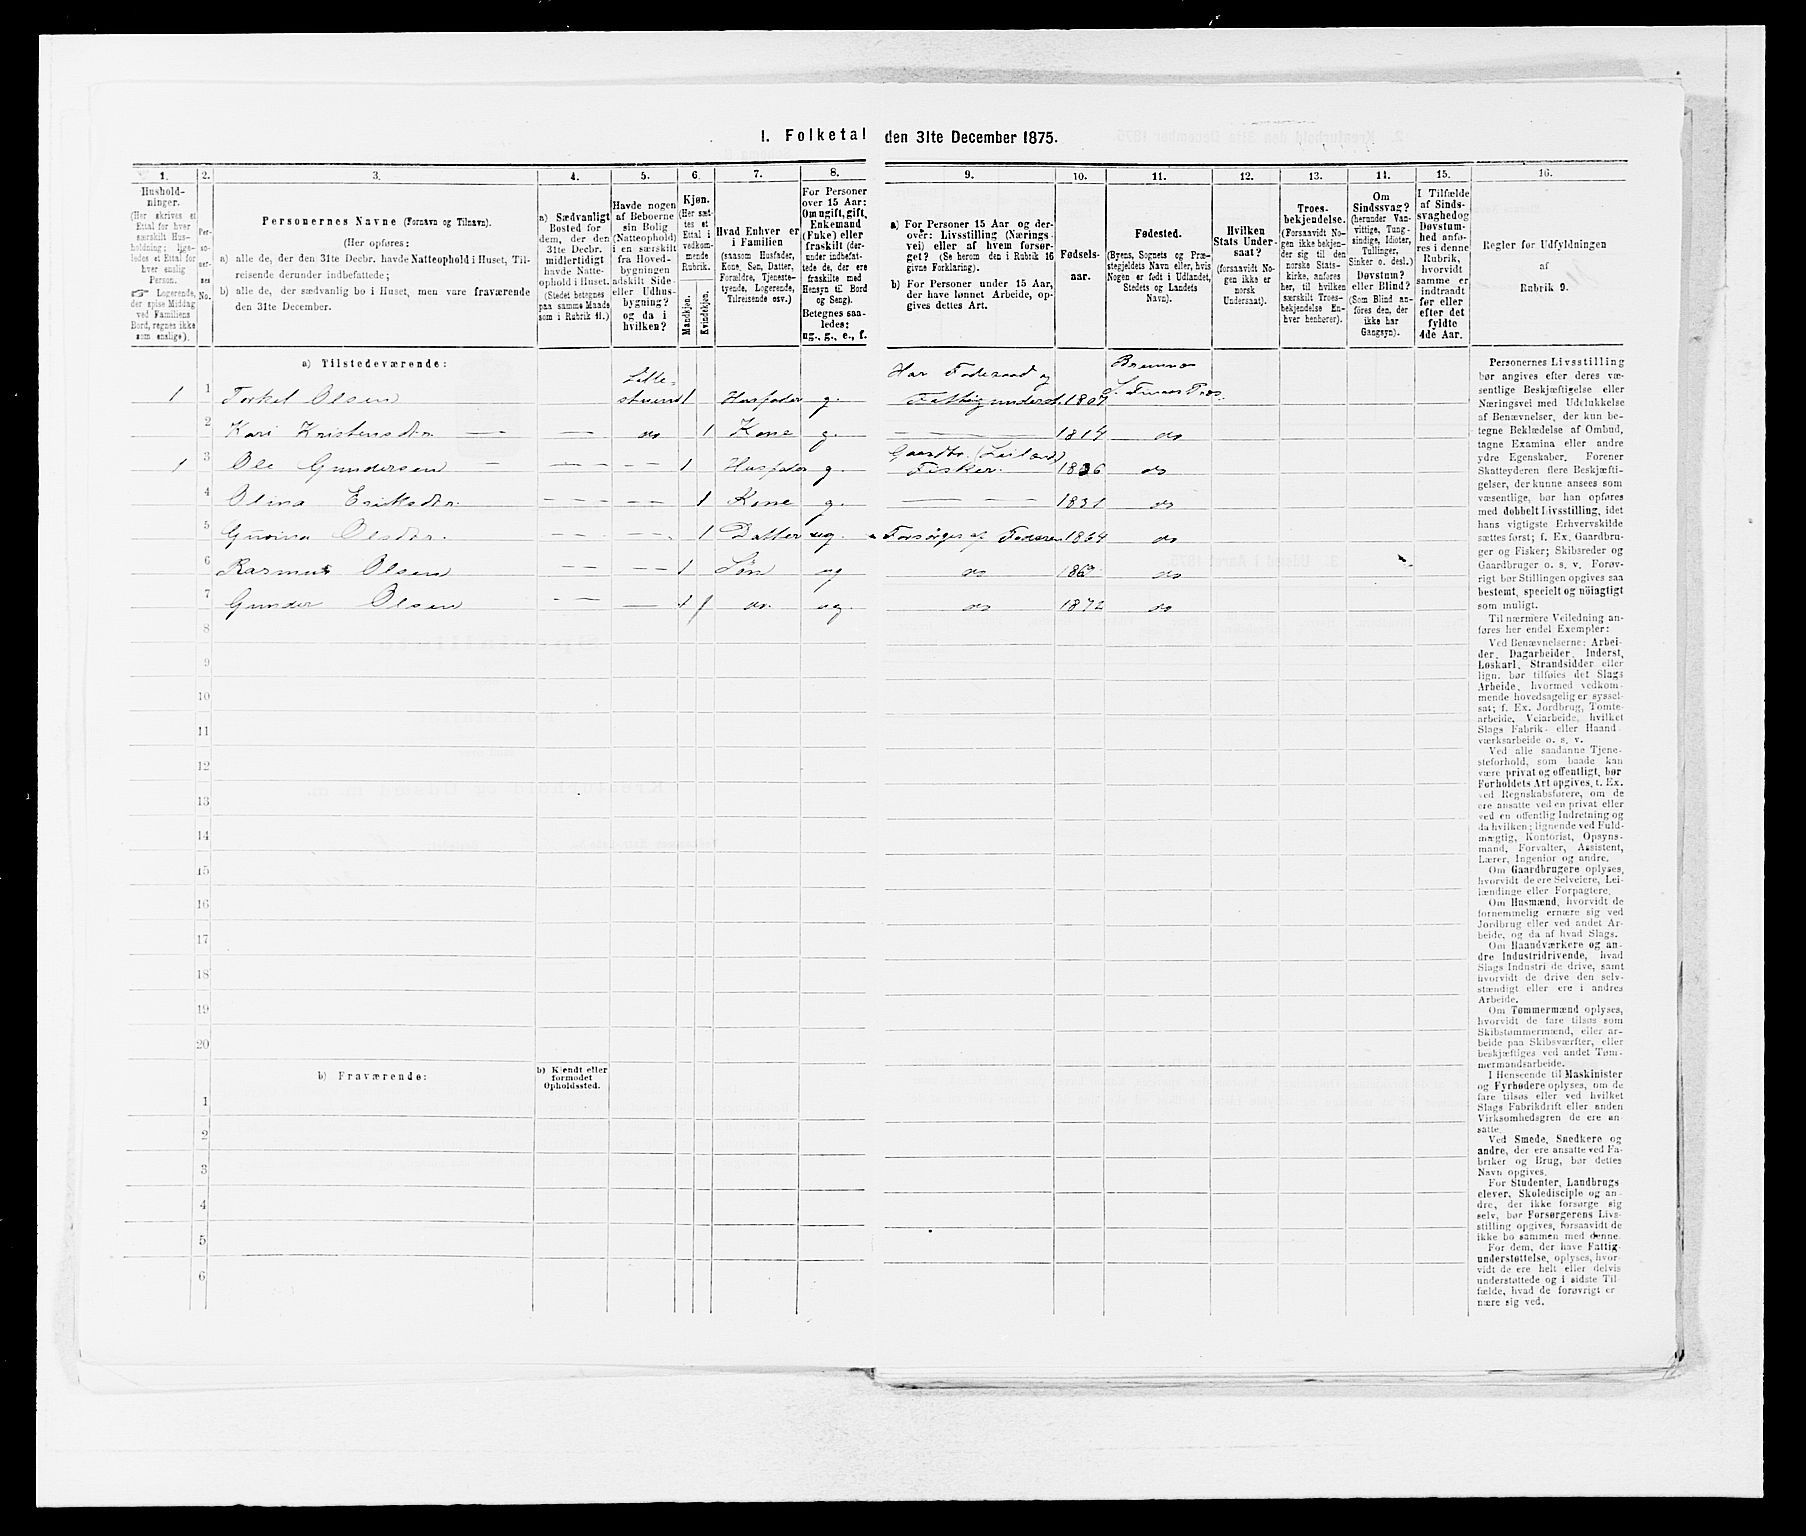 1. Folketal den 31te December 1875.
1. 2. 3. 4. 5. 6. 7. 8. 9. 10. 11. 12. 13. 14. 15. 16.
Hushold-
ninger.
(Her skrives et
Ettal for hver
særskilt Hus-
holdning; lige-
ledes et Ettal for
hver enslig
Person.
☞ Logerende,
der spise Middag
ved Familiens
Bord, regnes ikke
som enslige).
Per-
so-
ner-
nes
No.
Personernes Navne (Fornavn og Tilnavn).
(Her opføres:
a) alle de, der den 31te Decbr. havde Natteophold i Huset, Til-
reisende derunder indbefattede;
b) alle de, der sædvanlig bo i Huset, men vare fraværende
den 31te December.
a) Sædvanligt
Bosted for
dem, der den
31te Decbr.
midlertidigt
havde Natte-
ophold i Huset.
(Stedet betegnes
paa samme Maade
som i Rubrik 11.)
Havde nogen
af Beboerne
sin Bolig
(Natteophold)
i en særskilt
fra Hoved-
bygningen
adskilt Side-
eller Udhus-
bygning?
og da i
hvilken?
Kjøn.
(Her sæt-
tes et
Ettal i
vedkom-
mende
Rubrik.
Mandkjøn.
Kvindekjøn.
Hvad Enhver er
i Familien
(saasom Husfader,
Kone, Søn, Datter,
Forældre, Tjeneste-
tyende, Logerende,
Tilreisende osv.)
For Personer
over 15 Aar:
Om ugift, gift,
Enkemand
(Enke) eller
fraskilt (der-
under indbefat-
tede de, der ere
fraskilte med
Hensyn til Bord
og Seng).
Betegnes saa-
ledes:
ug., g., e., f.
a) For Personer 15 Aar og der-
over: Livsstilling (Nærings-
vei) eller af hvem forsør-
get? (Se herom den i Rubrik 16
givne Forklaring).
b) For Personer under 15 Aar,
der have lønnet Arbeide, op-
gives dettes Art.
Fødsels-
aar.
Fødested.
(Byens, Sognets og Præ-
stegjeldets Navn eller, hvis
Nogen er født i Udlandet,
Stedets og Landets
Navn).
Hvilken
Stats Under-
saat?
(forsaavidt No-
gen ikke er
norsk
Undersaat).
Troes-
bekjendelse.
(Forsaavidt No-
gen ikke bekjen-
der sig til den
norske Stats-
kirke, anføres
her, til hvilken
særskilt Troes-
bekjendelse En-
hver henhører).
Om
Sindssvag?
(herunder Van-
vittige, Tung-
sindige, Idioter,
Tullinger,
Sinker o. desl.)
Døvstum?
eller Blind?
(Som Blind an-
føres den, der
ikke har
Gangsyn).
I Tilfælde
af Sinds-
svaghed og
Døvstum-
hed anfø-
res i denne
Rubrik,
hvorvidt
samme er
indtraadt
før eller
efter det
fyldte
4de Aar.
Regler for Udfyldningen
af
Rubrik 9.
a) Tilstedeværende:
1 1 Torkel Olsen 1 Husfader g. Har Føderaad og 1807
2 Kari Kristensdtr. — — — — do 1 Kone g. — — — 1814 do
1 3 Ole Gundersen — — — — 1 Husfader g. Fisker. 1826 do
4 Olina Eriksdtr. — — — — 1 Kone g. — — — 1831 do
5 Olsdtr. — — — — 1 Datter ug. Forsørges af Faderen do
6 Rasmus Olsen — — — 1 Søn ug do do
7 Gunder Olsen — — — 1 do. ug. do 1872 do
8
9
10
11
12
13
14
15
16
17
18
19
20
b) Fraværende:
b) Kjendt eller
formodet
Opholdssted.
1
2
3
4
5
6
Personernes Livsstilling
bør angives efter deres væ-
sentlige Beskjæftigelse eller
Næringsvei med Udelukkelse
af Benævnelser, der kun be-
tegne Beklædelse af Ombud,
tagne Examina eller andre
ydre Egenskaber. Forener
Skatteyderen flere Beskjæfti-
gelser, der kunne ansees som
væsentlige, bør han opføres
med dobbelt Livsstilling, idet
hans vigtigste Erhvervskilde
sættes først; f. Ex. Gaardbru-
ger og Fisker; Skibsreder og
Gaardbruger o. s. v. Forøv-
rigt bør Stillingen opgives saa
bestemt, specielt og nøiagtigt
som muligt.
Til nærmere Veiledning an-
føres her endel Exempler:
Ved Benævnelserne: Arbei-
der, Dagarbeider, Inderst,
Løskarl, Strandsidder eller
lign. bør tilføies det Slags
Arbeide, hvormed vedkom-
mende hovedsagelig er syssel-
sat; f. Ex. Jordbrug, Tomte-
arbeide, Veiarbeide, hvilket
Slags Fabrik- eller Haand-
værksarbeide o. s. v.
Ved alle saadanne Tjene-
steforhold, som baade kan
være privat og offentligt, bør
Forholdets Art opgives, t. Ex.
ved Regnskabsførere, om de
ere ansatte ved en privat eller
ved en offentlig Indretning og
da hvilken; lignende ved Fuld-
mægtig, Kontorist, Opsyns-
mand, Forvalter, Assistent,
Lærer, Ingeniør og andre.
Om Gaardbrugere oplyses,
hvorvidt de ere Selveiere, Lei-
lændinge eller Forpagtere.
Om Husmænd, hvorvidt de
fornemmelig ernære sig ved
Jordbrug eller ved andet Ar-
beide, og da af hvad Slags.
Om Haandværkere og an-
dre Industridrivende, hvad
Slags Industri de drive, samt
hvorvidt de drive den selv-
stændigt eller ere i andres
Arbeide.
Om Tømmermænd oplyses,
hvorvidt de fare tilsøs som
Skibstømmermænd, eller ar-
beide paa Skibsværfter, eller
beskjæftiges ved andet Tøm-
mermandsarbeide.
I Henseende til Maskinister
og Fyrbødere oplyses, om de
fare tilsøs eller ved hvilket
Slags Fabrikdrift eller anden
Virksomhedsgren de ere an-
satte.
Ved Smede, Snedkere og
andre, der ere ansatte ved Fa-
briker og Brug, bør dettes
Navn opgives.
For Studenter, Landbrugs-
elever, Skoledisciple og an-
dre, der ikke forsørge sig
selv, bør Forsørgerens Livs-
stilling opgives, forsaavidt de
ikke bo sammen med denne.
For dem, der have Fattig-
understøttelse, oplyses, hvor-
vidt de ere helt eller delvis
understøttede og i sidste Til-
fælde, hvad de forøvrigt er-
nære sig ved.